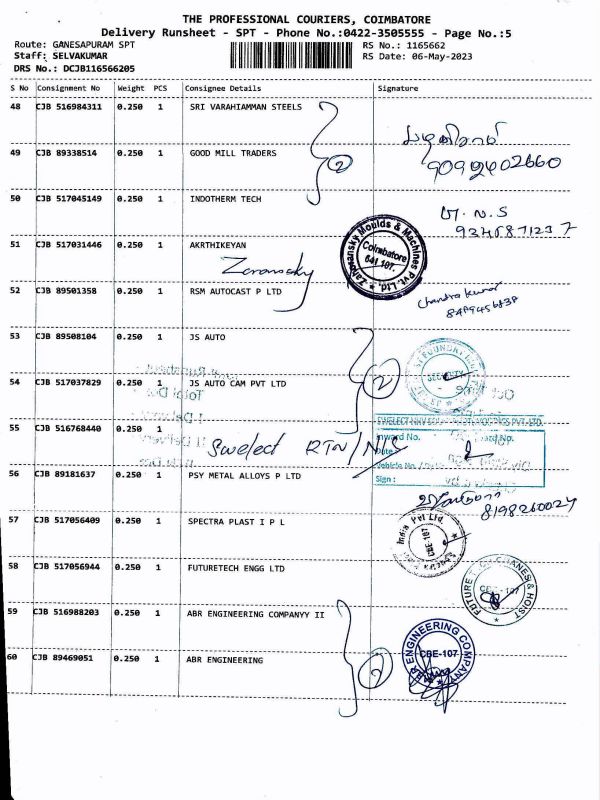 THE PROFESSIONAL COURIERS, COIMBATORE
Delivery Runsheet - SPT - Phone No.:0422-3505555 - Page No.:5
Route: GANESAPURAM SPT RS No.: 1165662
Staff: SELVAKUMAR RS Date: 06-May-2023
DRS No.: DCJB116566205
S No Consignment No Weight PCS Consignee Details Signature
48 CJB 516984311 0.250 1 SRI VARAHIAMMAN STEELS
2
49 CJB 89338514 0.250 1 GOOD MILL TRADERS
9092402660
50 CJB 517045149 0.250 1 INDOTHERM TECH
51 CJB 517031446 0.250 1 AKRTHIKEYAN
Zaromsky Moulds & Machines Pvt. Ltd.
Coimbatore
641 107.
52 CJB 89501358 0.250 1 RSM AUTOCAST P LTD
Chandra kumar
53 CJB 89508104 0.250 1 JS AUTO
JS FOUNDATION
SECURITY
54 CJB 517037829 0.250 1 JS AUTO CAM PVT LTD
2
55 CJB 516768440 0.250 1
Swelect RTN/N/S
Inward No.
Date
Vehicle No.
Sign :
56 CJB 89181637 0.250 1 PSY METAL ALLOYS P LTD
8198260024
57 CJB 517056409 0.250 1 SPECTRA PLAST I P L
India Pvt Ltd
CBE-107
58 CJB 517056944 0.250 1 FUTURETECH ENGG LTD
CRANES & HOIST
CBE-107
59 CJB 516988203 0.250 1 ABR ENGINEERING COMPANYY II
ABR ENGINEERING COMPANY
CBE-107
60 CJB 89469051 0.250 1 ABR ENGINEERING
2